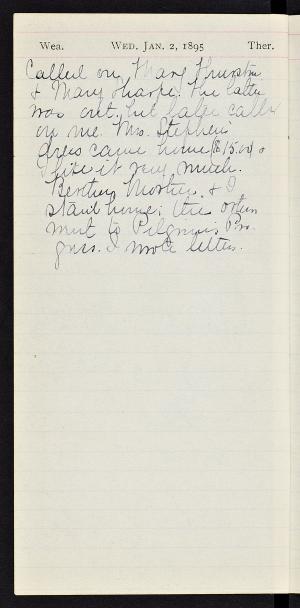 Wea. WED. JAN. 2, 1895 Ther.
Called on Mary Thurston
& Mary Sharpe. The latter
was out, but later called
on me. Mrs. Stephen's
dress came home ($15.00) &
I like it very much.
Bertha, Mother & I
staid home; the others
went to Pilgrim's Pro-
gress. I wrote letters.